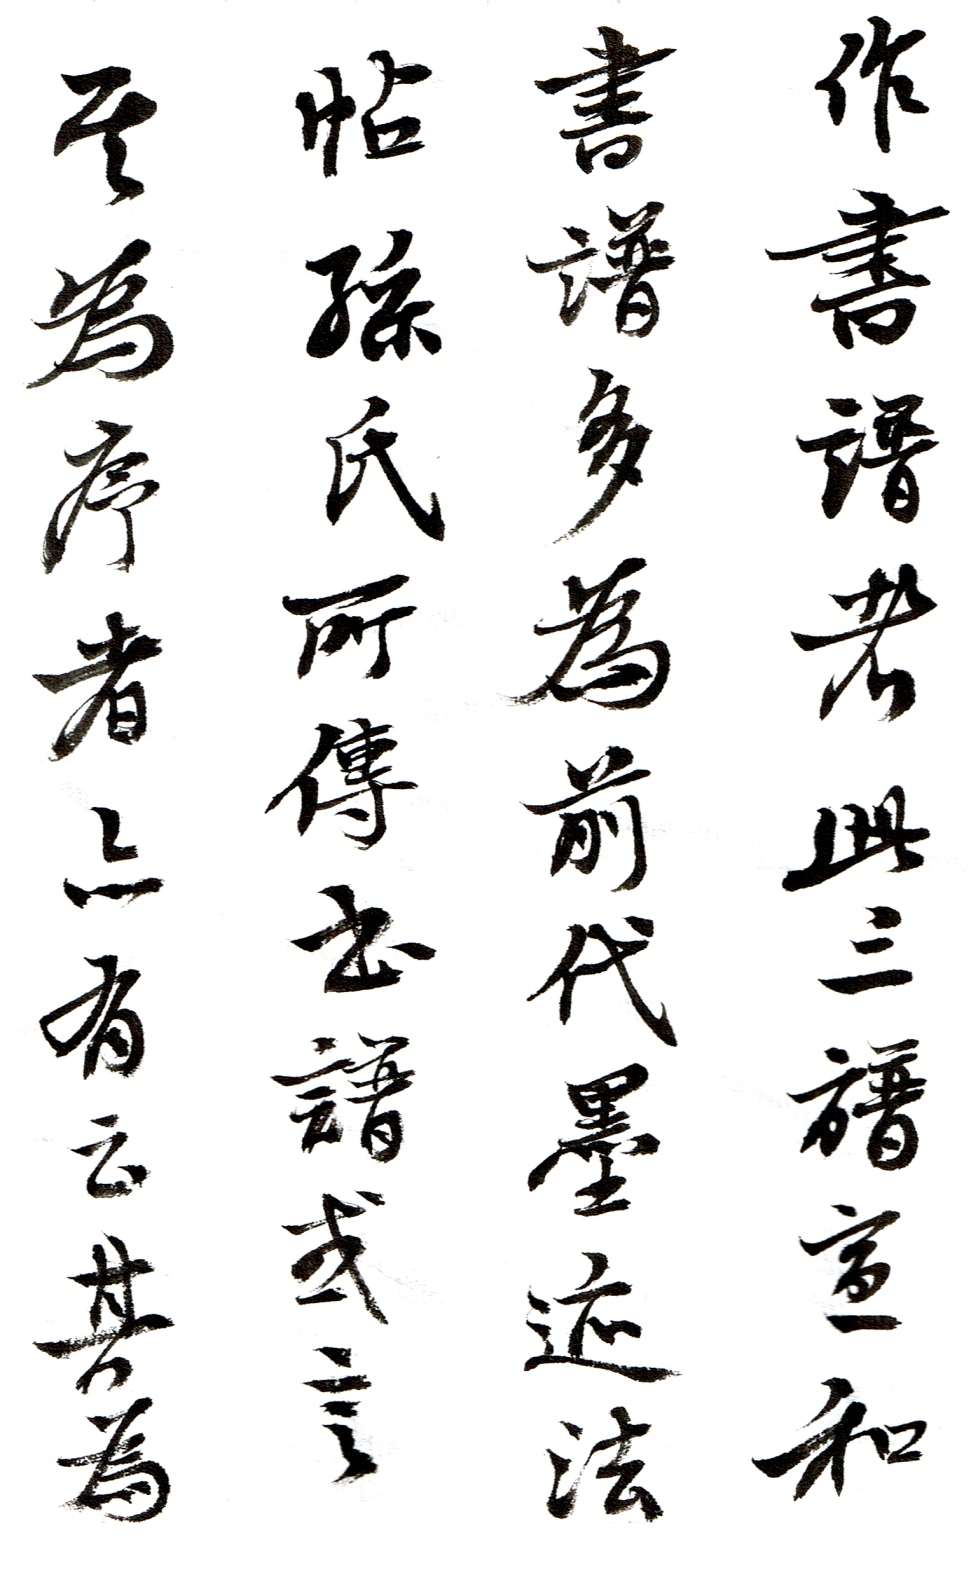 作書譜考此三譜宣和
書譜多為前代墨迹法
帖孫氏所傳書譜或言
其為序者亦有云其為